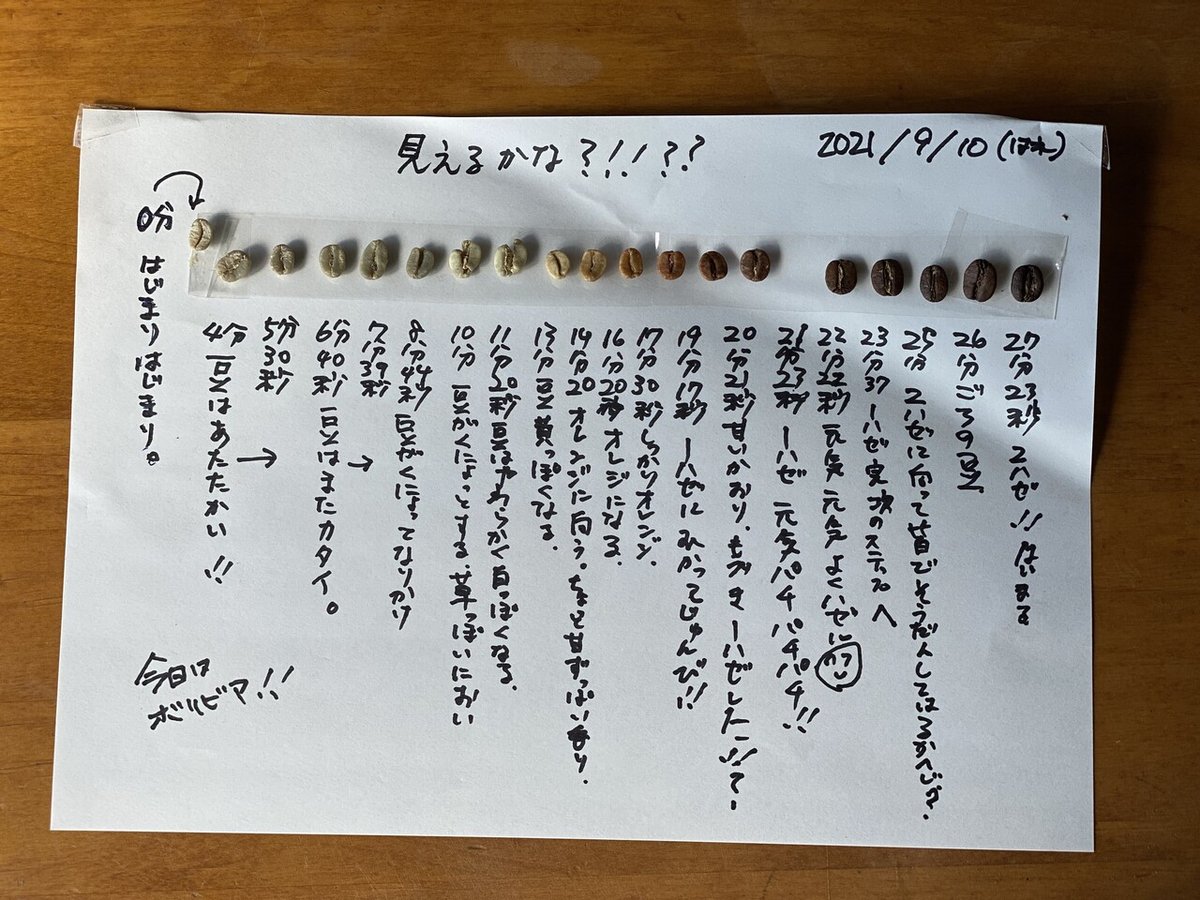 見えるかな?!!??
2021/9/10(はれ)
0分 はじまりはじまり。
4分 豆はあたたかい!!
5分30秒 →
6分40秒 豆はまだカタイ。
7分39秒 →
8分44秒 豆がくにょってなりかけ
10分 豆がくにょっとする.草っぽいにおい
11分20秒 豆はやわらかく白っぽくなる.
13分 豆黄っぽくなる.
14分20 オレンジに向う。ちょと甘ずっぱい香り.
16分20秒 オレジになる.
17分30秒 しっかりオレンジ.
19分17秒 一ハゼに むかってじゅんび!!
20分21秒 甘いかおり.
21分23秒 一ハゼ 元気パチパチパチ!!
22分22秒 元気 元気 よくハゼに
23分37 一ハゼ 次のステップへ
25分 2ハゼに向って皆でそうだんしてはるかんじ?
26分ごろの豆
27分23秒 2ハゼ!! はじまる
今日は
ボリビア!!